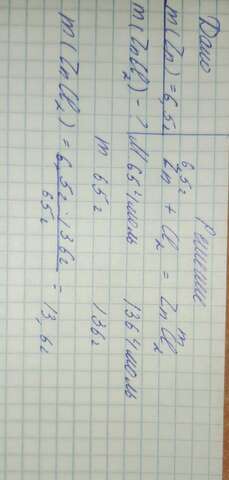 Дано
m(Zn) = 6,5г
m(ZnCl₂) - ?
Решение
6,5г m
Zn + Cl₂ = ZnCl₂
M 65 г/моль 136 г/моль
m 65 г 136г
m(ZnCl₂) = 6,5г · 136г / 65г = 13,6г